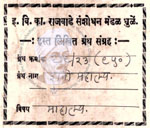 इ. वि. का. राजवाडे संशोधन मंडळ धुळें.
हस्त लिखित ग्रंथ संग्रह
ग्रंथ क्रमांक
ग्रंथ नाम
विषय माहात्म्य.